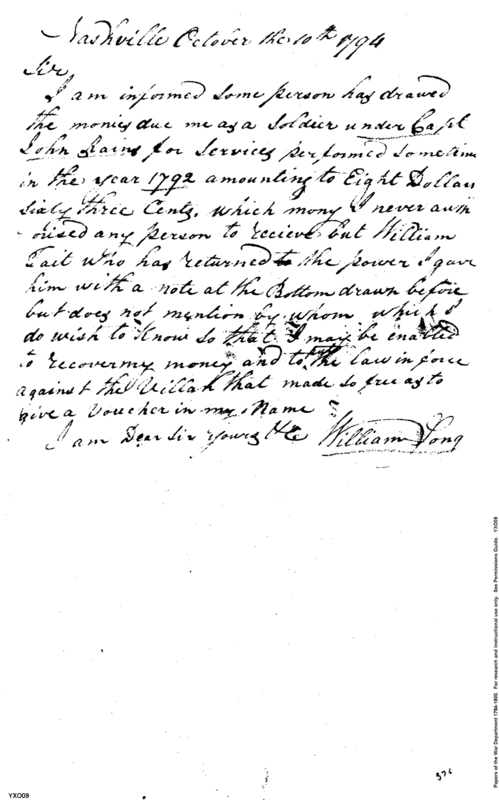 Nashville Octover the 10th 1794
Sir
I am informed Some person has drawed
the monies due me as a Soldier under Capt
John Rains for Services performed Sometime
in the year 1792 amounting to Eight Dollars
Sixty three Cents. which mony I never auth
-orised any person to recieve but William
Tait who has returned to the power I gave
him with a note at the Bottom drawn before
but does not mention by whom which I
do wish to Know so that I may be enabled
to recover my money and to the law in force
against the Villan that made so free as to
give a Voucher in my Name
I am Dear Sir Yours &c William Long
376
YXO09
Papers of the War Department 1784-1800. For research and instructional use only. See Permissions Guide. YXO09